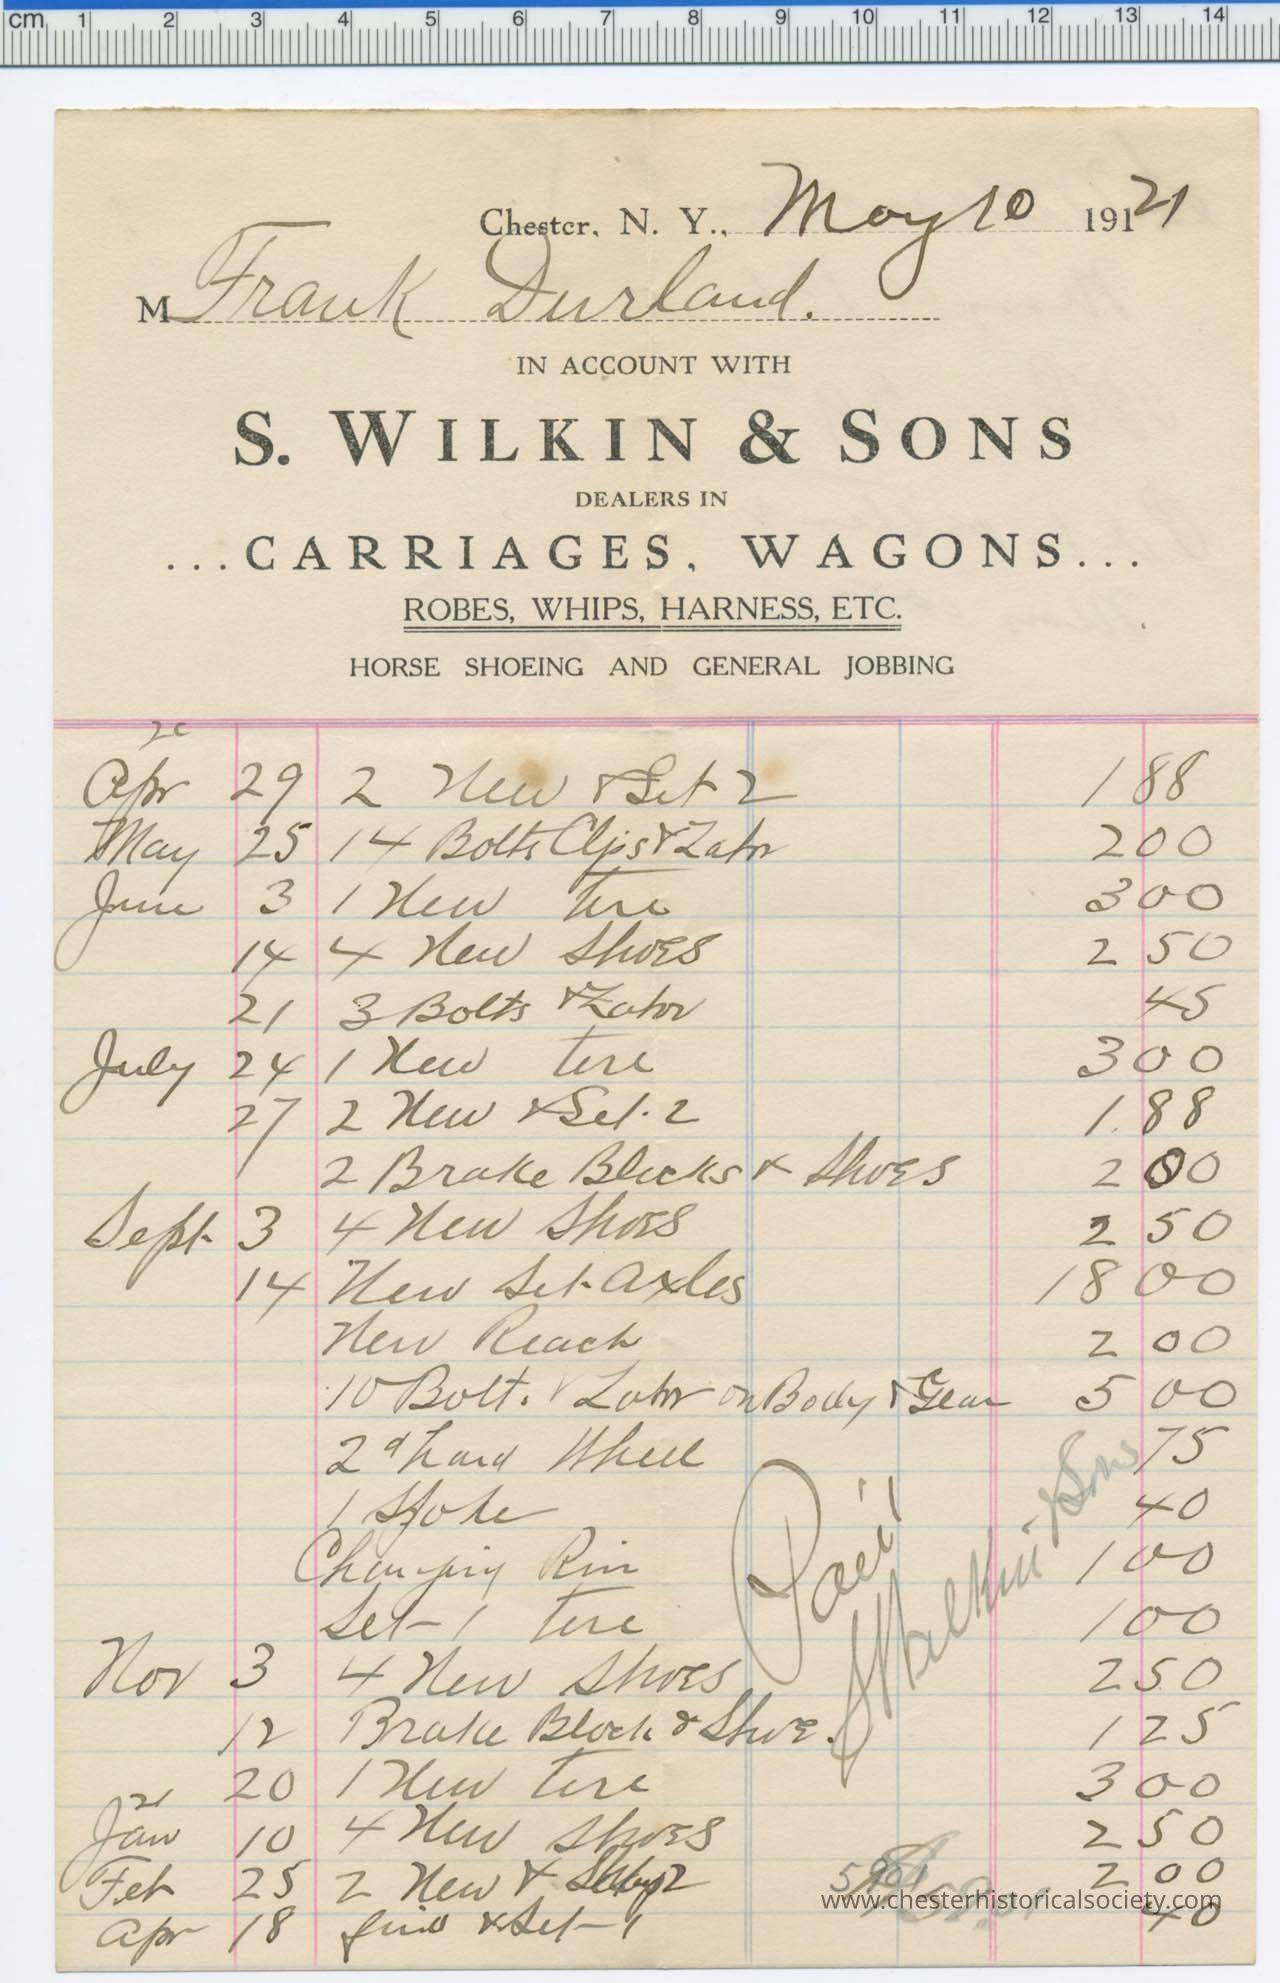 cm 1 2 3 4 5 6 7 8 9 10 11 12 13 14
Chester, N. Y., May 10 191 21
M Frank Durland.
IN ACCOUNT WITH
S. WILKIN & SONS
DEALERS IN
...CARRIAGES, WAGONS...
ROBES, WHIPS, HARNESS, ETC.
HORSE SHOEING AND GENERAL JOBBING
20
Apr 29 2 New & Set 2 1 88
May 25 14 Bolts Clips & Labr 2 00
June 3 1 New tire 3 00
14 4 New Shoes 2 50
21 3 Bolts & Labor 45
July 24 1 New tire 3 00
27 2 New & Set. 2 1.88
2 Brake Blocks & Shoes 2 00
Sept 3 4 New Shoes 2 50
14 New Set Axles 18 00
New Reach 2 00
10 Bolt. & Labr on Body & Gear 5 00
2d hand Wheel 75
1 Spoke 40
Changing Rim 1 00
Set 1 tire 1 00
Nov 3 4 New Shoes 2 50
12 Brake Block & Shoe. 1 25
20 1 New tire 3 00
21
Jan 10 4 New Shoes 2 50
Feb 25 2 New & 2 2 00
Apr 18 & Set 1 40
Paid
S Wilkin & Sons
www.chesterhistoricalsociety.com